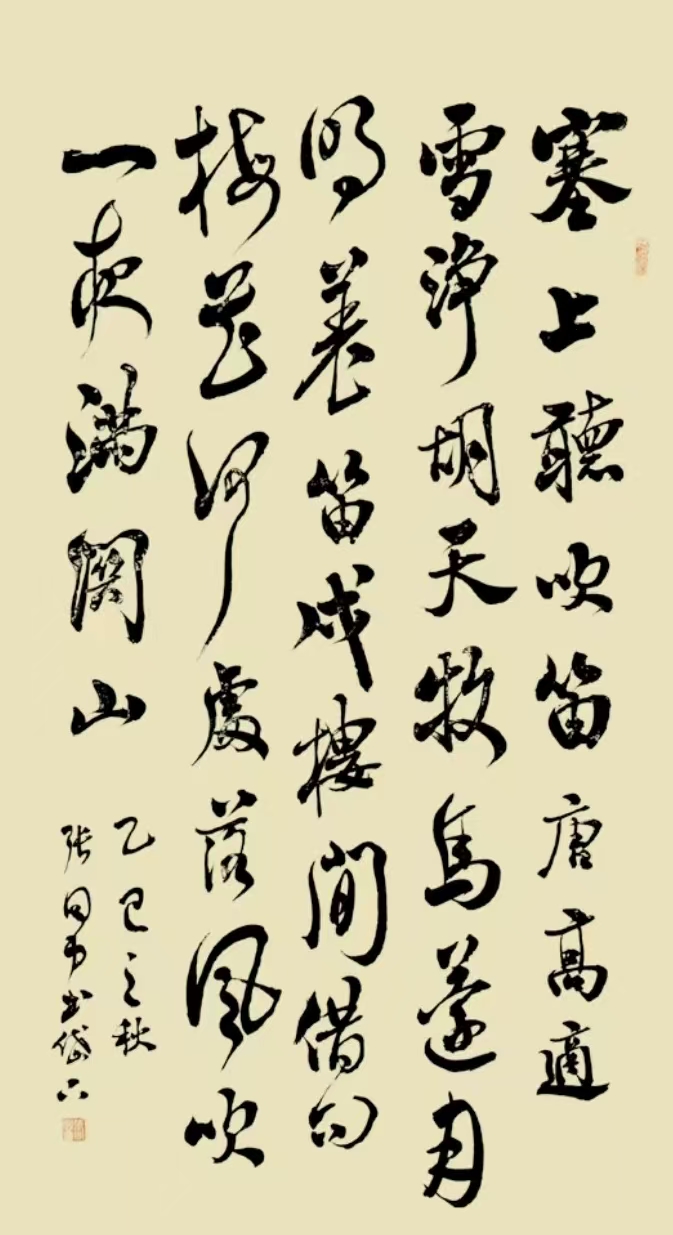 塞上聽吹笛唐高適
雪淨胡天牧馬還月
明羌笛戍樓間借問
梅花何處落風吹
一夜满關山
乙巳之秋
张同书岱下